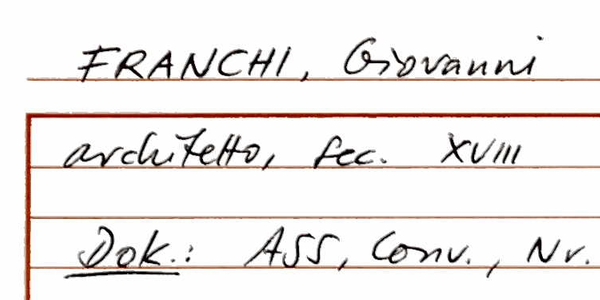 FRANCHI, Giovanni
architetto, sec. XVIII
Dok.: ASS, Conv., Nr.